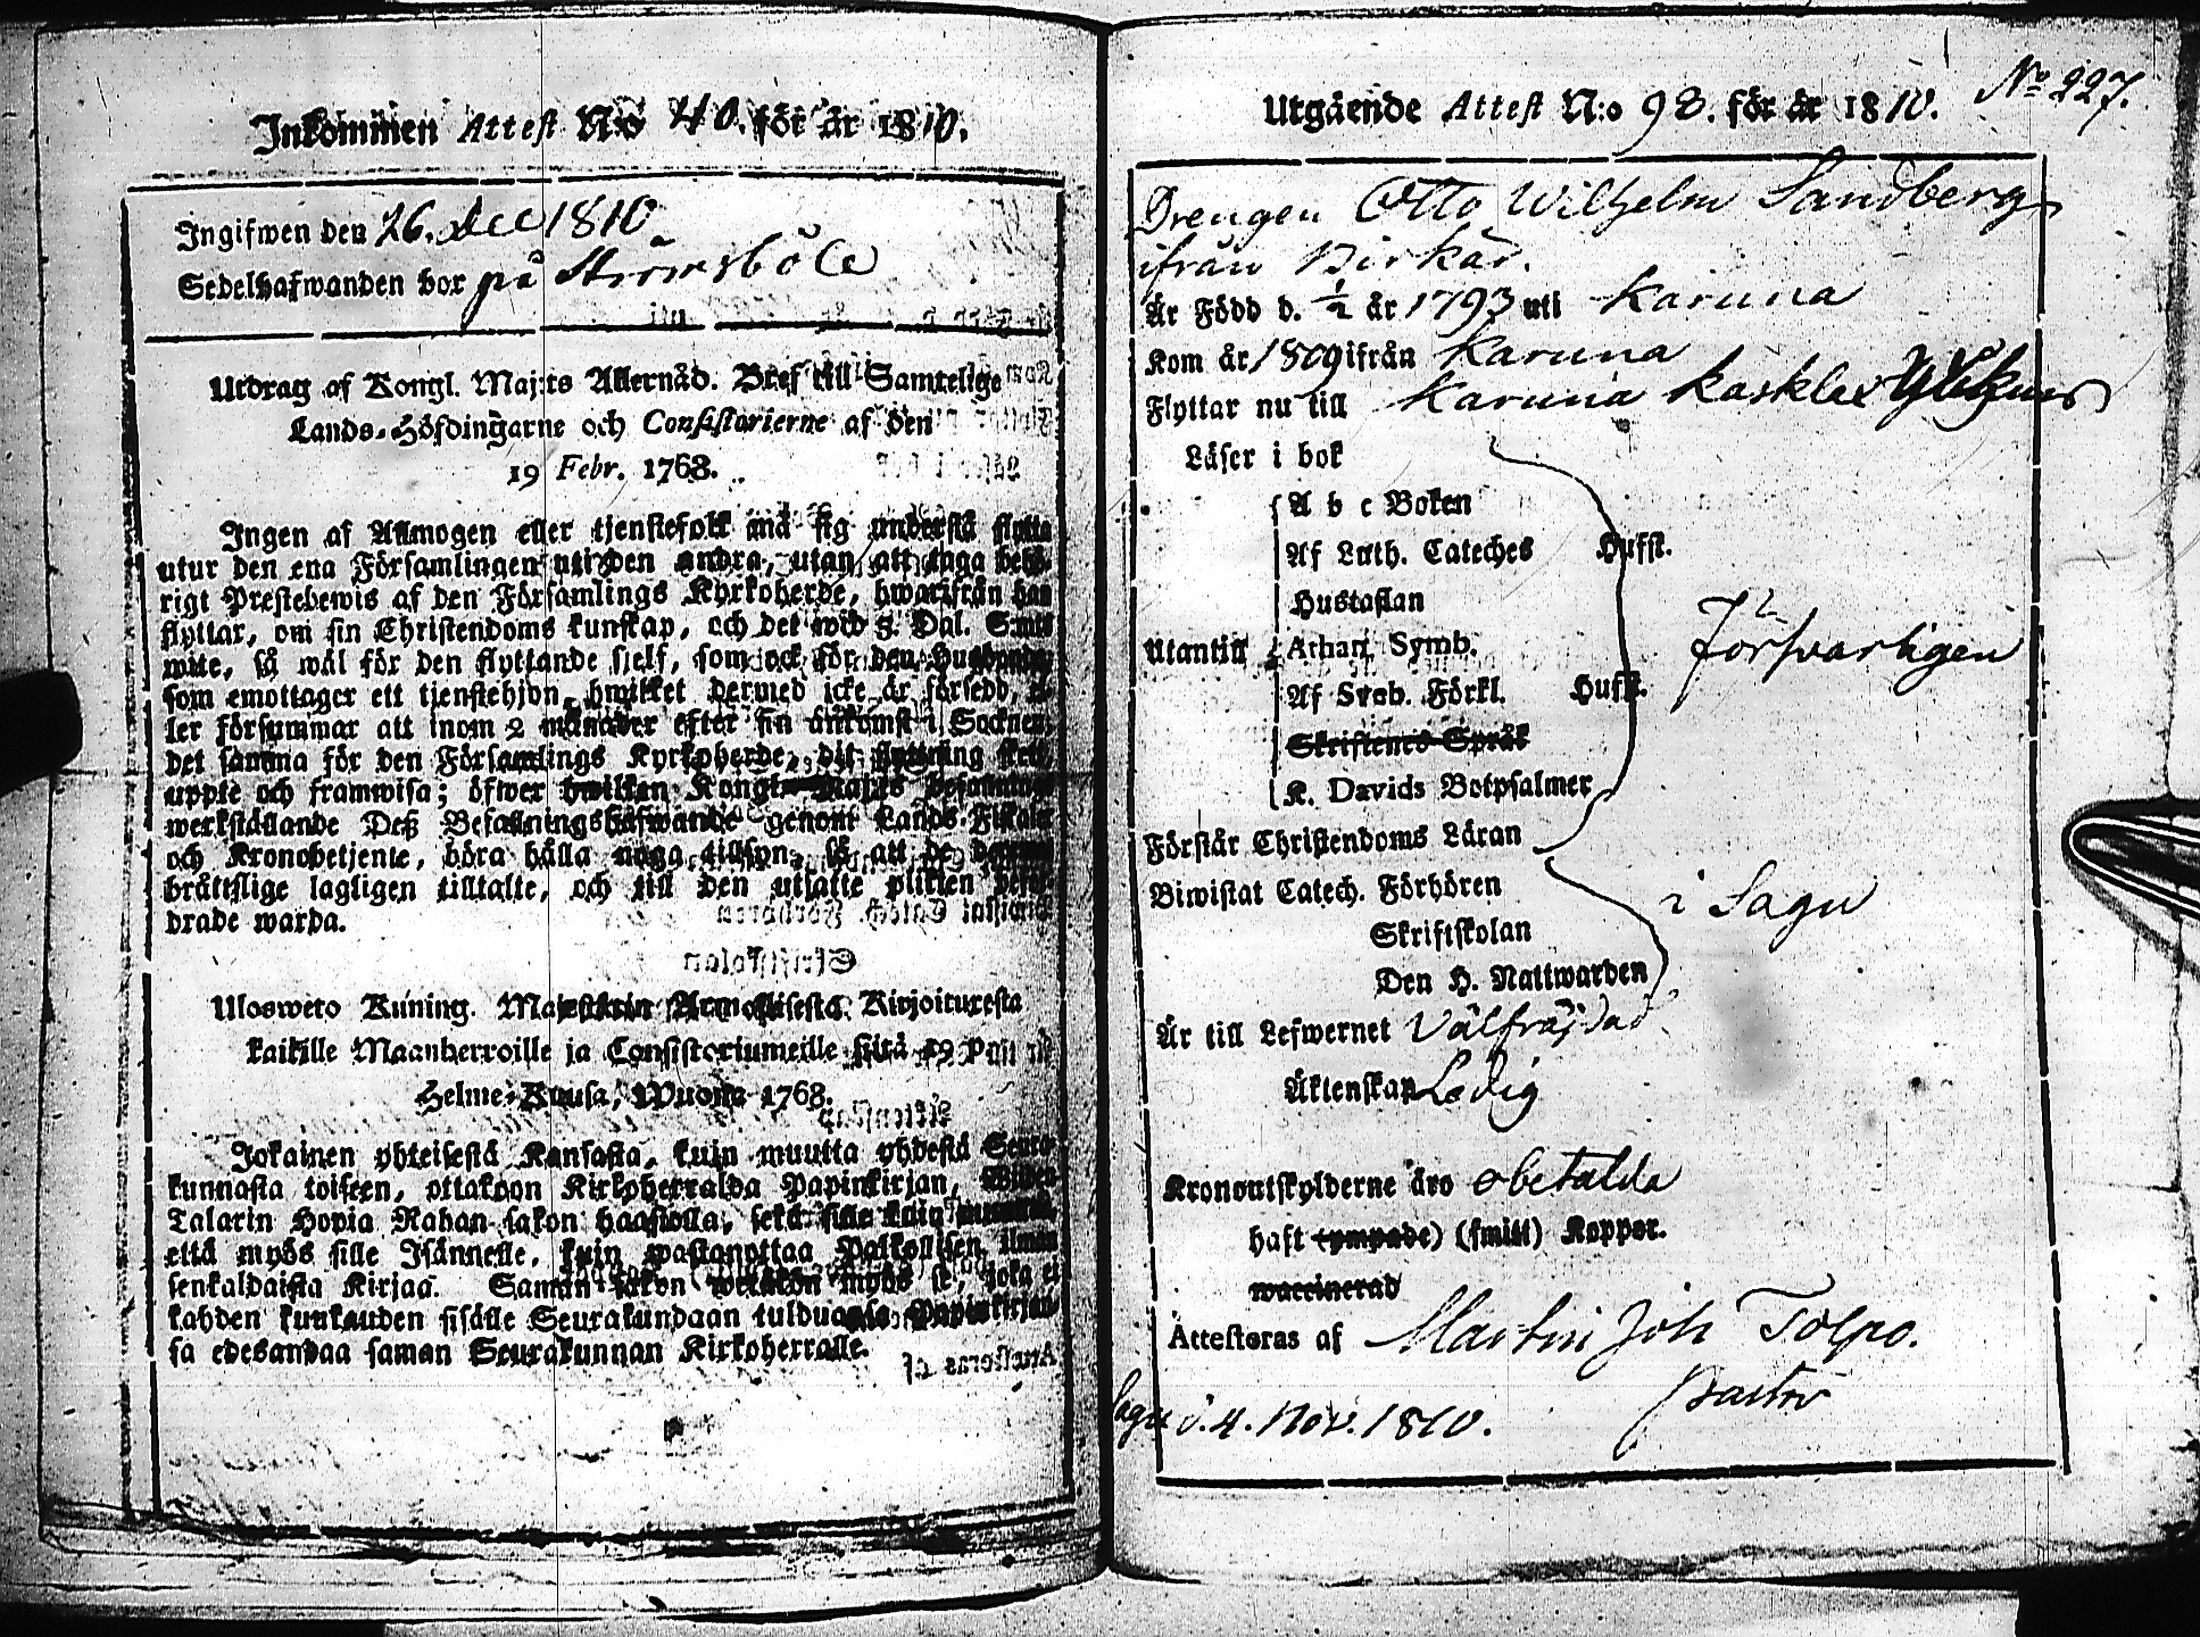 Inkommen Attest N:o 40. för år 1810.
Ingifwen den 26. Dec 1810
Sedelhafwanden bor på Strömsböle
Utdrag af Kongl. Maj:ts Allernåd. Bref till Samtelige
Lands-Höfdingarne och Consistorierne af den
19 Febr. 1768.
Ingen af Allmogen eller tjenstefolk må sig understå flytta
utur den ena Församlingen uti den andra, utan att taga behö-
rigt Prestebewis af den Församlings Kyrkoherde, hwarifrån han
flyttar, om sin Christendoms kunskap, och det wid 5. Dal. S:mts
wite, så wäl för den flyttande sjelf, som ock för den Husbonde,
som emottager ett tjenstehjon, hwilket dermed icke är försedd, el-
ler försummar att inom 2 månader efter sin ankomst i Socknen,
det samma för den Församlings Kyrkoherde, dit flyttning skett,
uppte och framwisa; öfwer hwilken Kongl. Maj:ts befallnings
werkställande Deß Befallningshafwande genom Lands-Fiskaler
och Kronobetjente, böra hålla noga tillsyn, så att de
bråttslige lagligen tilltalte, och till den utsatte plikten befor-
drade warda.
Ulosweto Kuning. Majestetin Armollisesta Kirjoituxesta
kaikille Maanherroille ja Consistoriumeille siitä 19 p:nä
Helme-Kuusa, Wuona 1768.
Jokainen yhteisestä Kansasta, kuin muutta yhdestä Seura-
kunnasta toiseen, ottakoon Kirkoherralda Papinkirjan, Wiiden
Talarin Hopia Rahan sakon haastolla, sekä sille kuin muutta,
että myös sille Isännelle, kuin wastanottaa Palkollisen ilman
senkaldaista Kirjaa. Saman sakon wetäkön myös se, joka ei
kahden kuukauden sisälle Seurakundaan tulduansa Papinkirjan-
sa edesandaa saman Seurakunnan Kirkoherralle.
No 227.
Utgående Attest N:o 98. för år 1810.
Drengen Otto Wilhelm Sandberg
ifrån Birkas.
Är Född d. 1/2 år 1793 uti Karuna
Kom år 1809 ifrån Karuna
Flyttar nu till Karuna
Läser i bok
A b c Boken
Af Luth. Cateches Hufst.
Hustaflan
Utantill Athan. Symb.
Försvarligen
Af Sveb. Förkl. Hufst.
Skriftenes Språk
K. Davids Botpsalmer
Förstår Christendoms Läran
Biwistat Catech. Förhören
i Sagu
Skriftskolan
Den H. Nattwarden
Är till Lefwernet Välfräjdad
Äktenskap Ledig
Kronoutskylderne äro obetalda
haft (ympade) (smitt) Koppor.
waccinerad
Attesteras af Martin Joh Tolpo.
Pastor
Sagu d. 4. Nov. 1810.